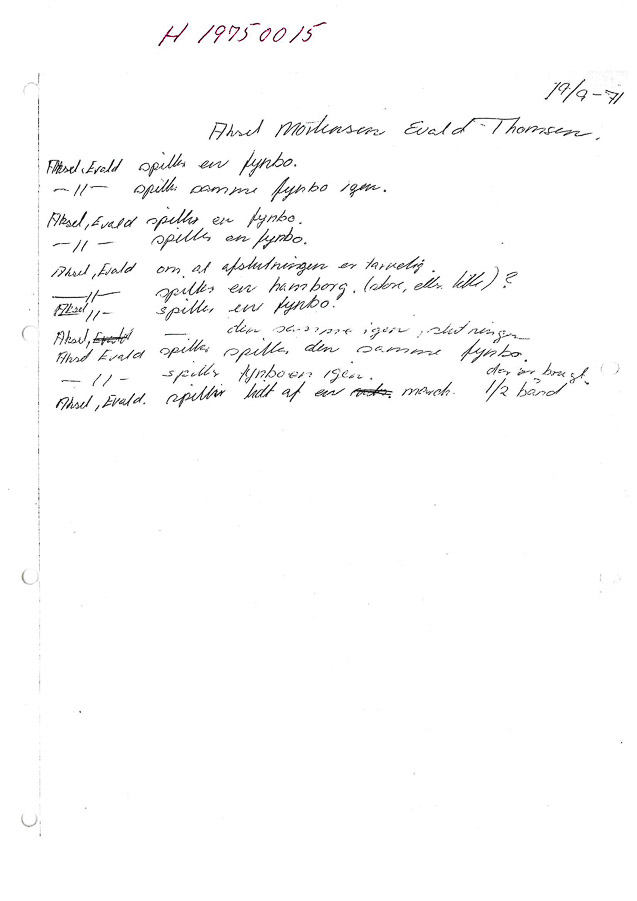 H 19750015
19/9-71
Aksel Mortensen Evald Thomsen.
Aksel, Evald spiller en fynbo.
-"- spiller samme fynbo igen.
Aksel, Evald spiller en fynbo.
-"- spiller en fynbo.
Aksel, Evald om at afslutningen er tarvelig.
-"- spiller en hamborg. (store, eller lille)?
Aksel -"- spiller en fynbo.
Aksel, Evald — den samme igen, slutningen
Aksel Evald spiller spiller den samme fynbo.
-"- spiller fynboen igen. der er brugt
Aksel, Evald. spiller lidt af en march. 1/2 bånd